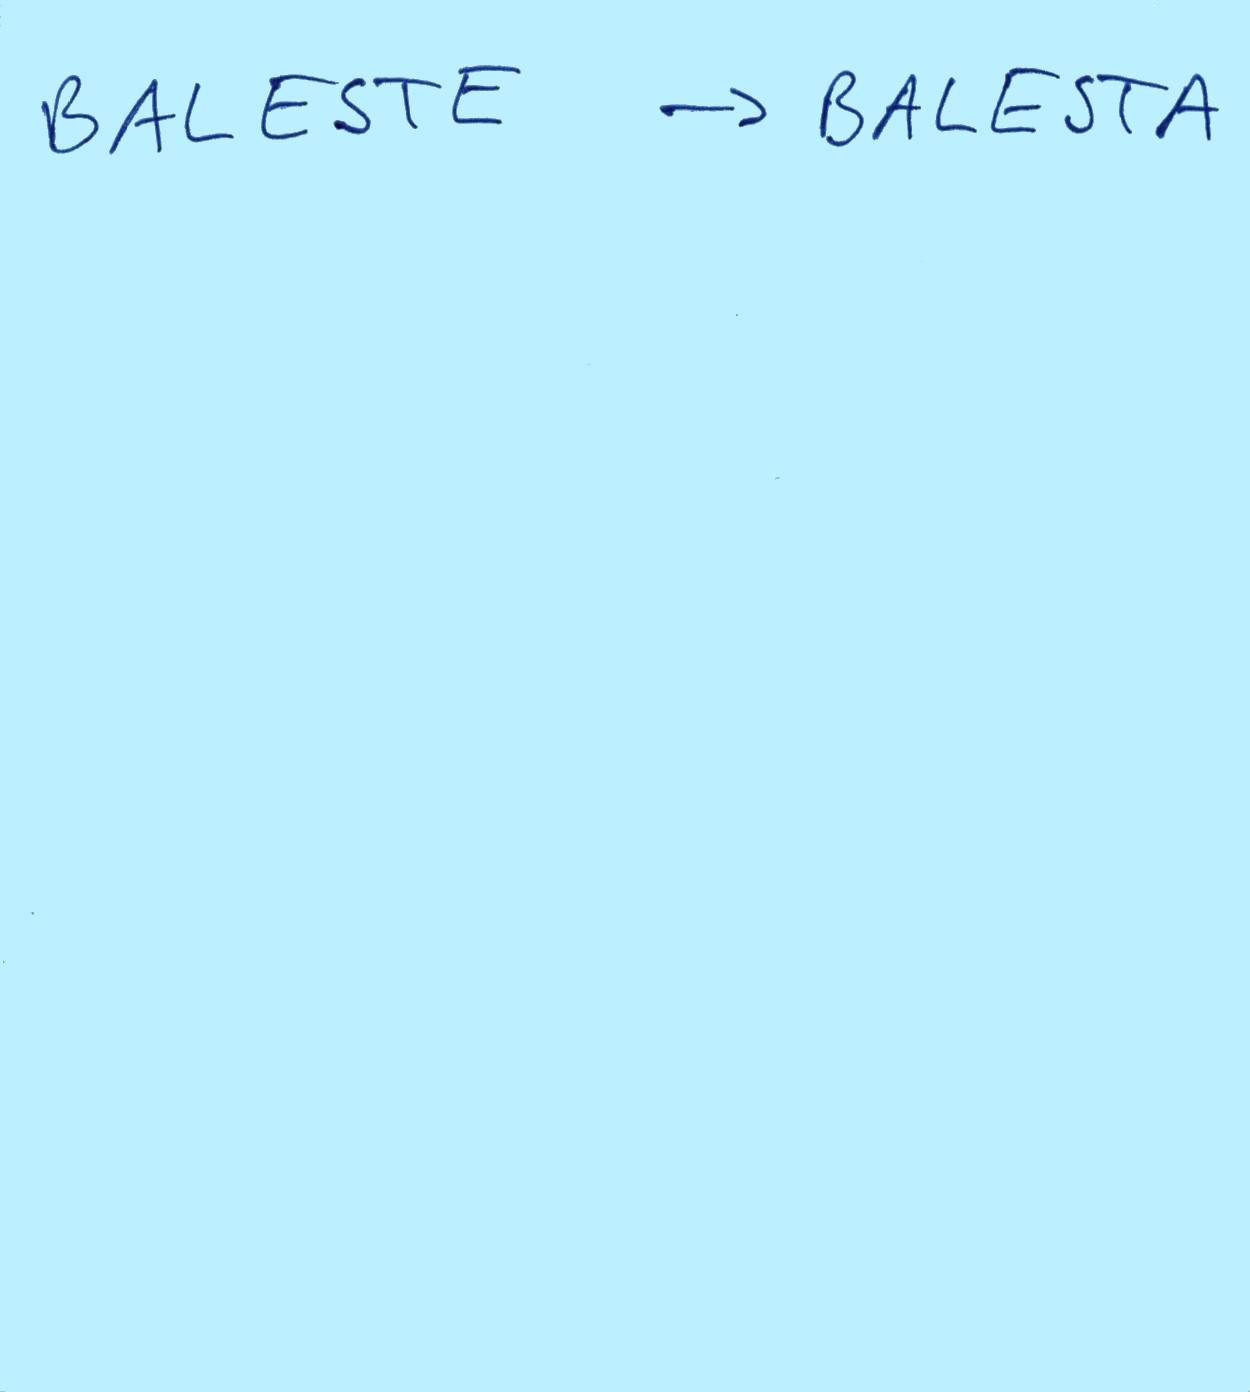 BALESTE → BALESTA